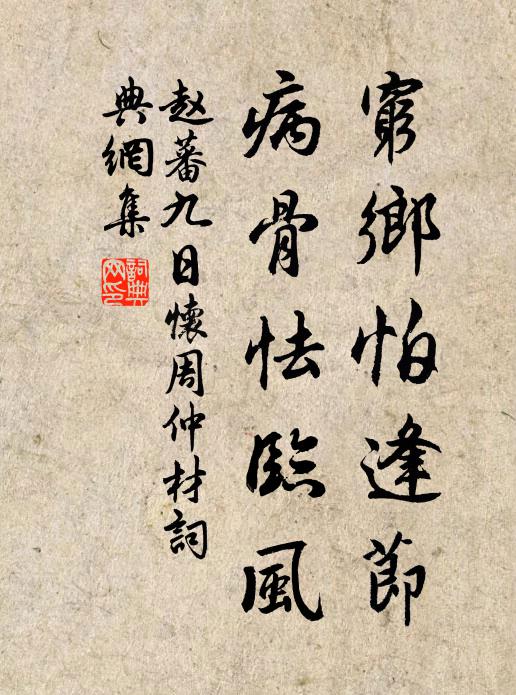 窮鄉怕逢節
病骨怯臨風
赵蕃九日懷周仲材詞
典網集
詞典網印